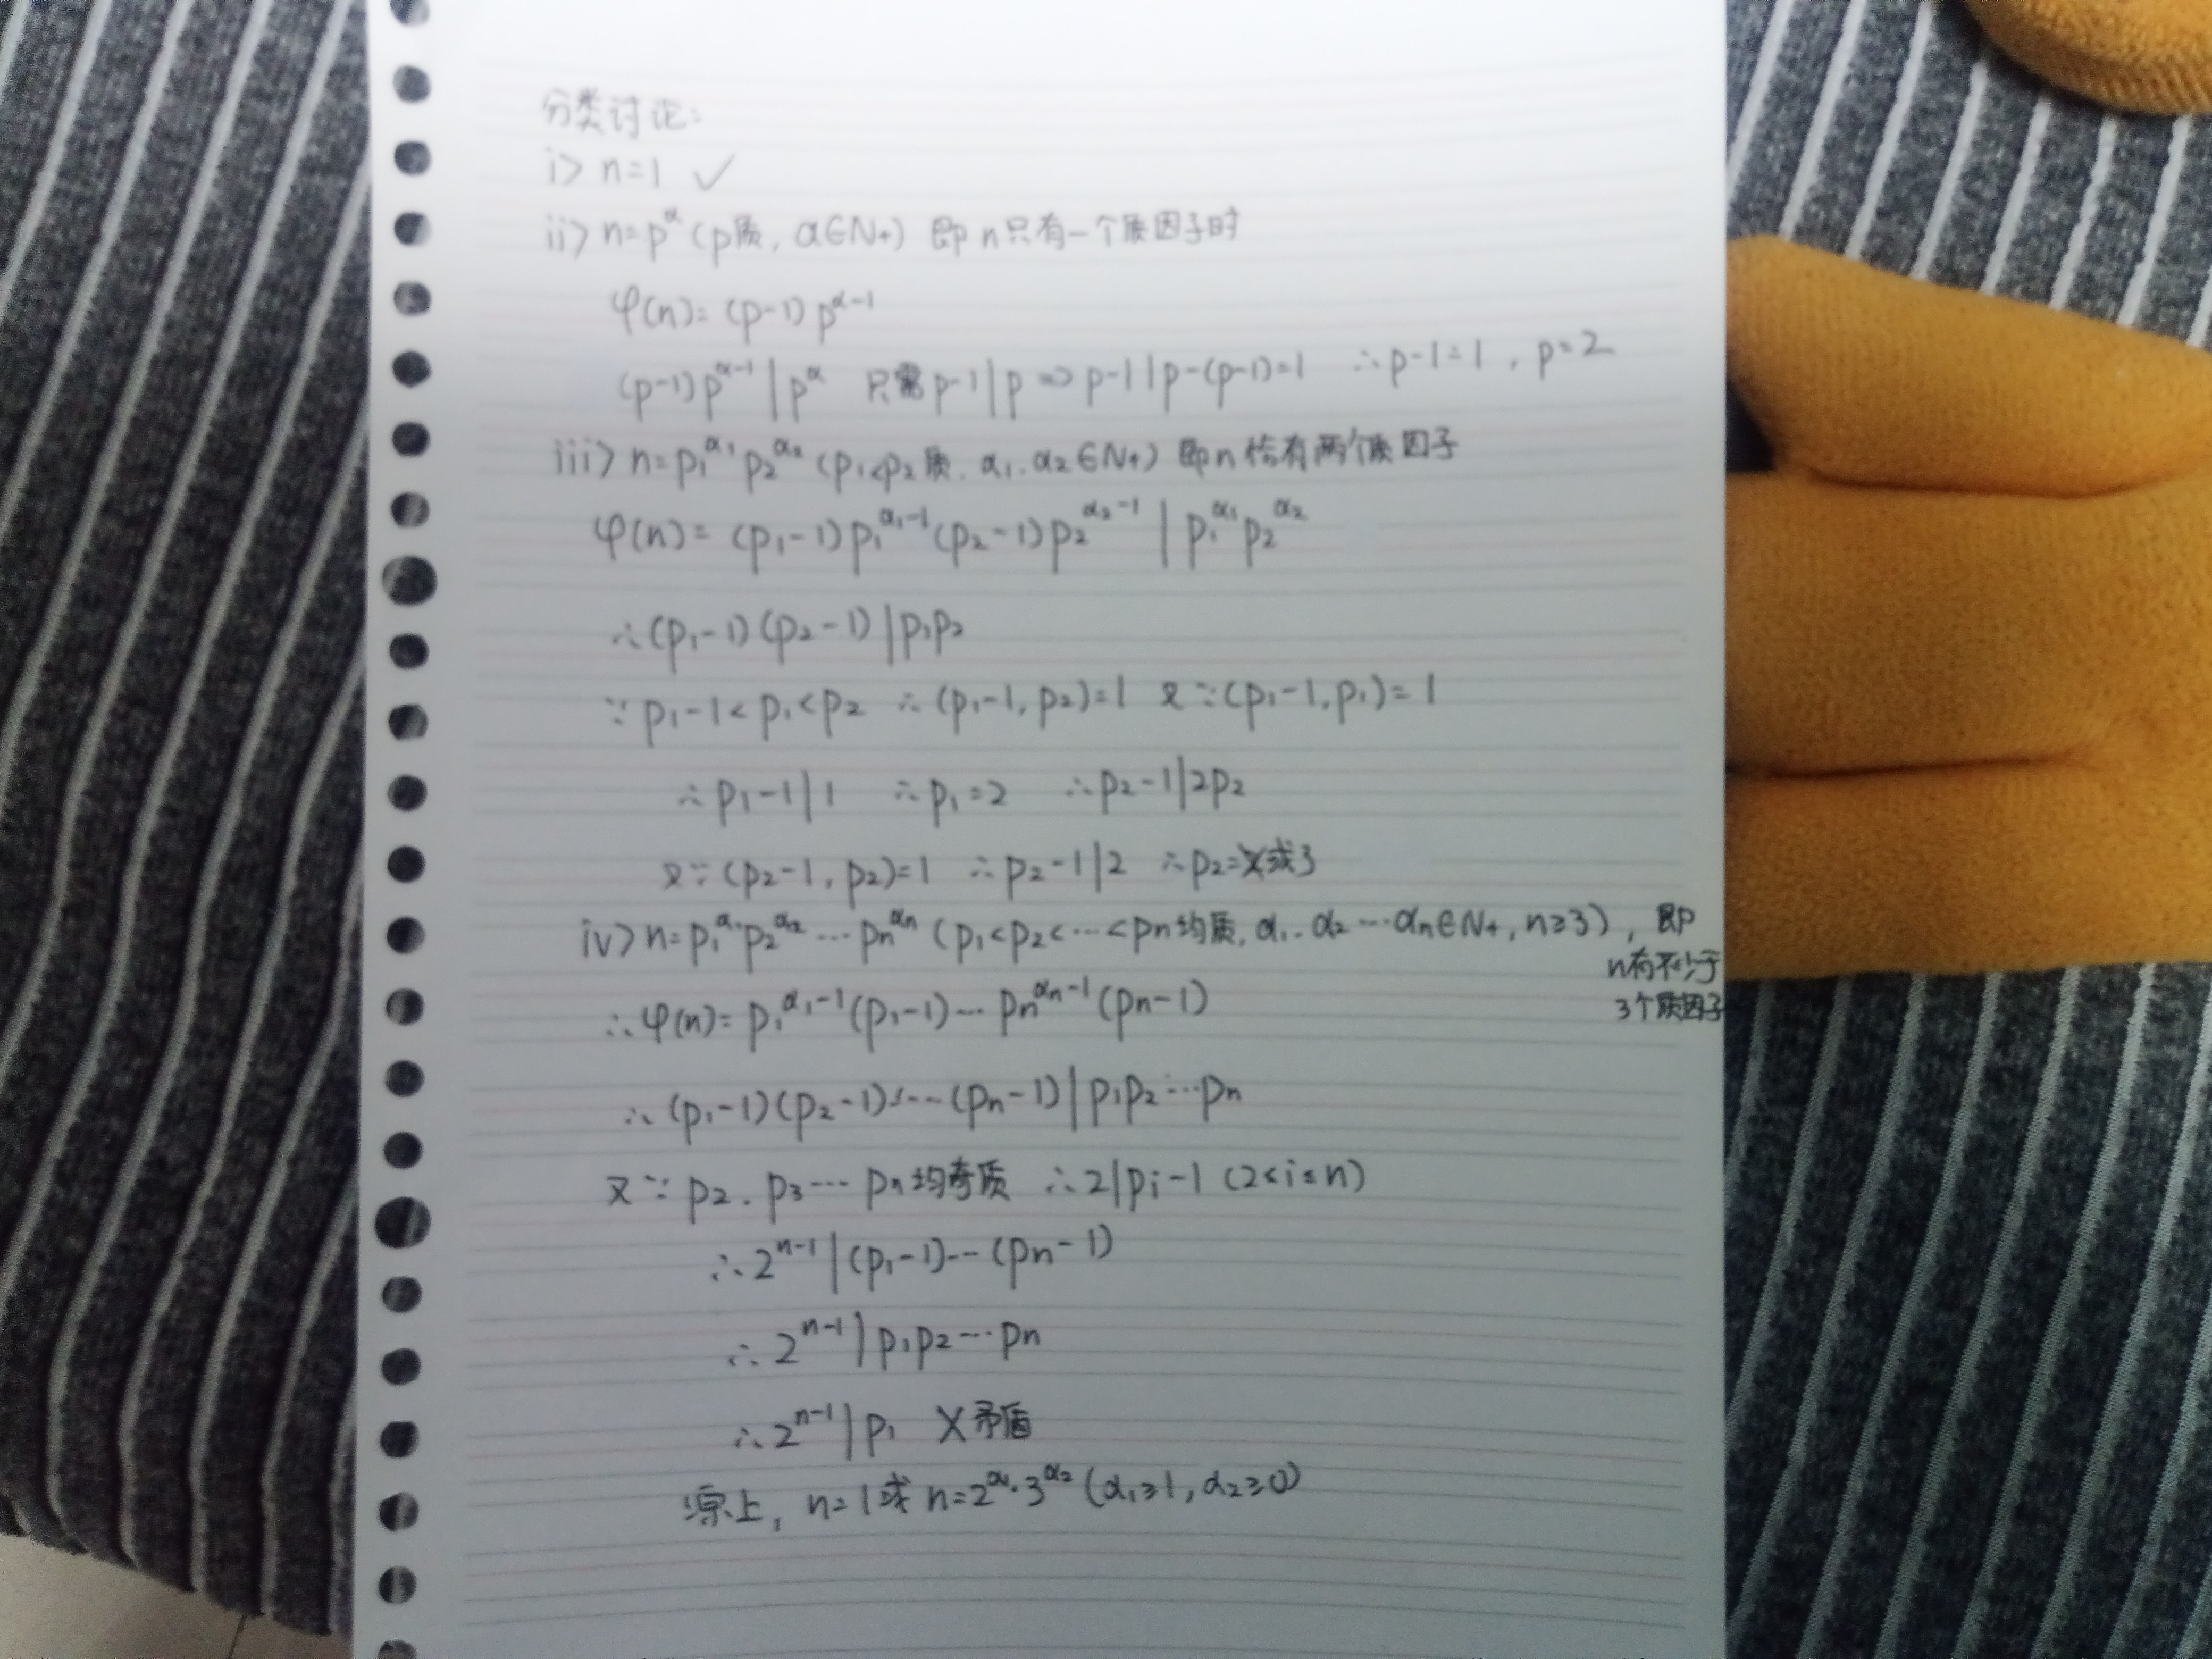 分类讨论:
i> n=1 ✓
ii> n=p^α (p质, α∈N+) 即 n只有一个质因子时
φ(n)= (p-1) p^(α-1)
(p-1)p^(α-1) | p^α 只需 p-1|p => p-1|p-(p-1)=1 ∴p-1=1, p=2
iii> n=p₁^α₁ p₂^α₂ (p₁<p₂质, α₁.α₂∈N+) 即n恰有两个质因子
φ(n)= (p₁-1)p₁^(α₁-1)(p₂-1)p₂^(α₂-1) | p₁^α₁ p₂^α₂
∴(p₁-1)(p₂-1)|p₁p₂
∵p₁-1<p₁<p₂ ∴(p₁-1,p₂)=1 又∵(p₁-1,p₁)=1
∴p₁-1|1 ∴p₁=2 ∴p₂-1|2p₂
又∵(p₂-1,p₂)=1 ∴p₂-1|2 ∴p₂=或3
iv> n=p₁^α₁ p₂^α₂ ⋯ pn^αn (p₁<p₂<⋯<pn均质, α₁.α₂⋯αn∈N+, n≥3), 即
n有不少于
3个质因子
∴φ(n)= p₁^(α₁-1)(p₁-1)⋯ pn^(αn-1)(pn-1)
∴(p₁-1)(p₂-1)⋯(pn-1)|p₁p₂⋯pn
又∵p₂.p₃⋯pn均奇质 ∴2|pi-1 (2≤i≤n)
∴2^(n-1)|(p₁-1)⋯(pn-1)
∴2^(n-1)|p₁p₂⋯pn
∴2^(n-1)|p₁ X矛盾
综上, n=1或 n=2^α₁·3^α₂ (α₁≥1, α₂≥0)